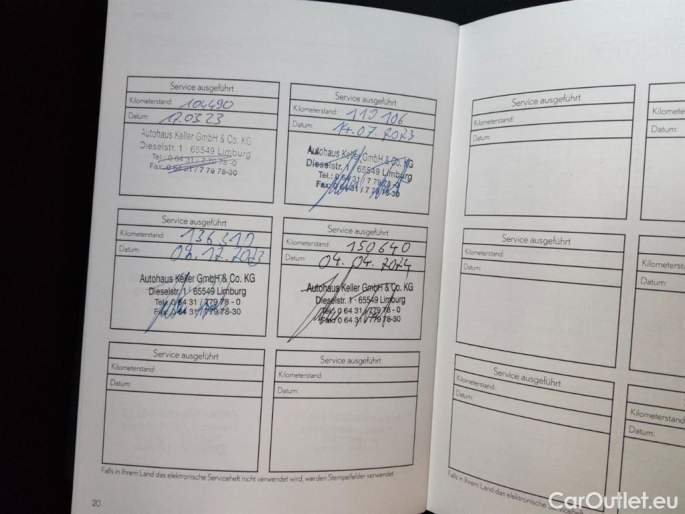 Service ausgeführt
Kilometerstand: 104490
Datum: 17.03.23
Autohaus Keller GmbH & Co. KG
Dieselstr. 1 · 65549 Limburg
Tel.: 0 64 31 / 7 79 78 - 0
Fax: 0 64 31 / 7 79 78-30
Service ausgeführt
Kilometerstand: 119106
Datum: 14.07.2023
Autohaus Keller GmbH & Co. KG
Dieselstr. 1 · 65549 Limburg
Tel.: 0 64 31 / 7 79 78 - 0
Fax: 0 64 31 / 7 79 78-30
Service ausgeführt
Kilometerstand:
Datum:
Service ausgeführt
Kilometerstand: 136310
Datum: 2023
Autohaus Keller GmbH & Co. KG
Dieselstr. 1 · 65549 Limburg
Tel.: 0 64 31 / 7 79 78 - 0
Fax: 0 64 31 / 7 79 78-30
Service ausgeführt
Kilometerstand: 150640
Datum: 04.04.2024
Autohaus Keller GmbH & Co. KG
Dieselstr. 1 · 65549 Limburg
Tel.: 0 64 31 / 7 79 78 - 0
Fax: 0 64 31 / 7 79 78-30
Service ausgeführt
Kilometerstand:
Datum:
Kilometerstand:
Datum:
Service ausgeführt
Kilometerstand:
Datum:
Service ausgeführt
Kilometerstand:
Datum:
Service ausgeführt
Kilometerstand:
Datum:
Kilometerstand:
Datum:
Falls in Ihrem Land das elektronische Serviceheft nicht verwendet wird, werden Stempelfelder verwendet.
Falls in Ihrem Land das elektronische Serviceheft
20
CarOutlet.eu